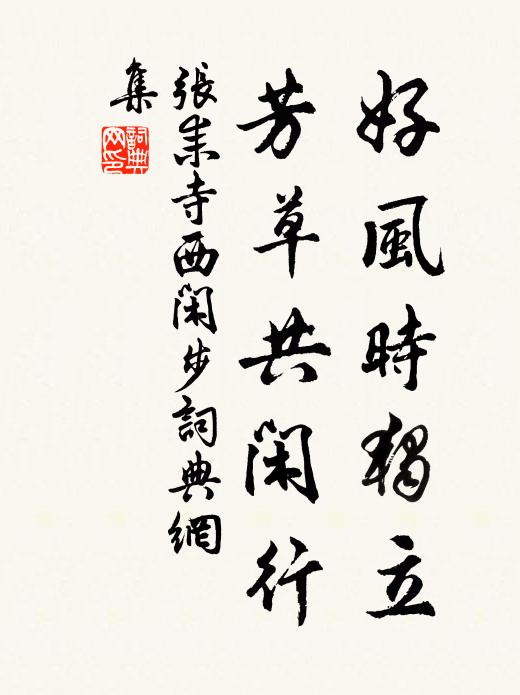 好風時獨立
芳草共閑行
張耒寺西閑步詞典網
集
詞典網印